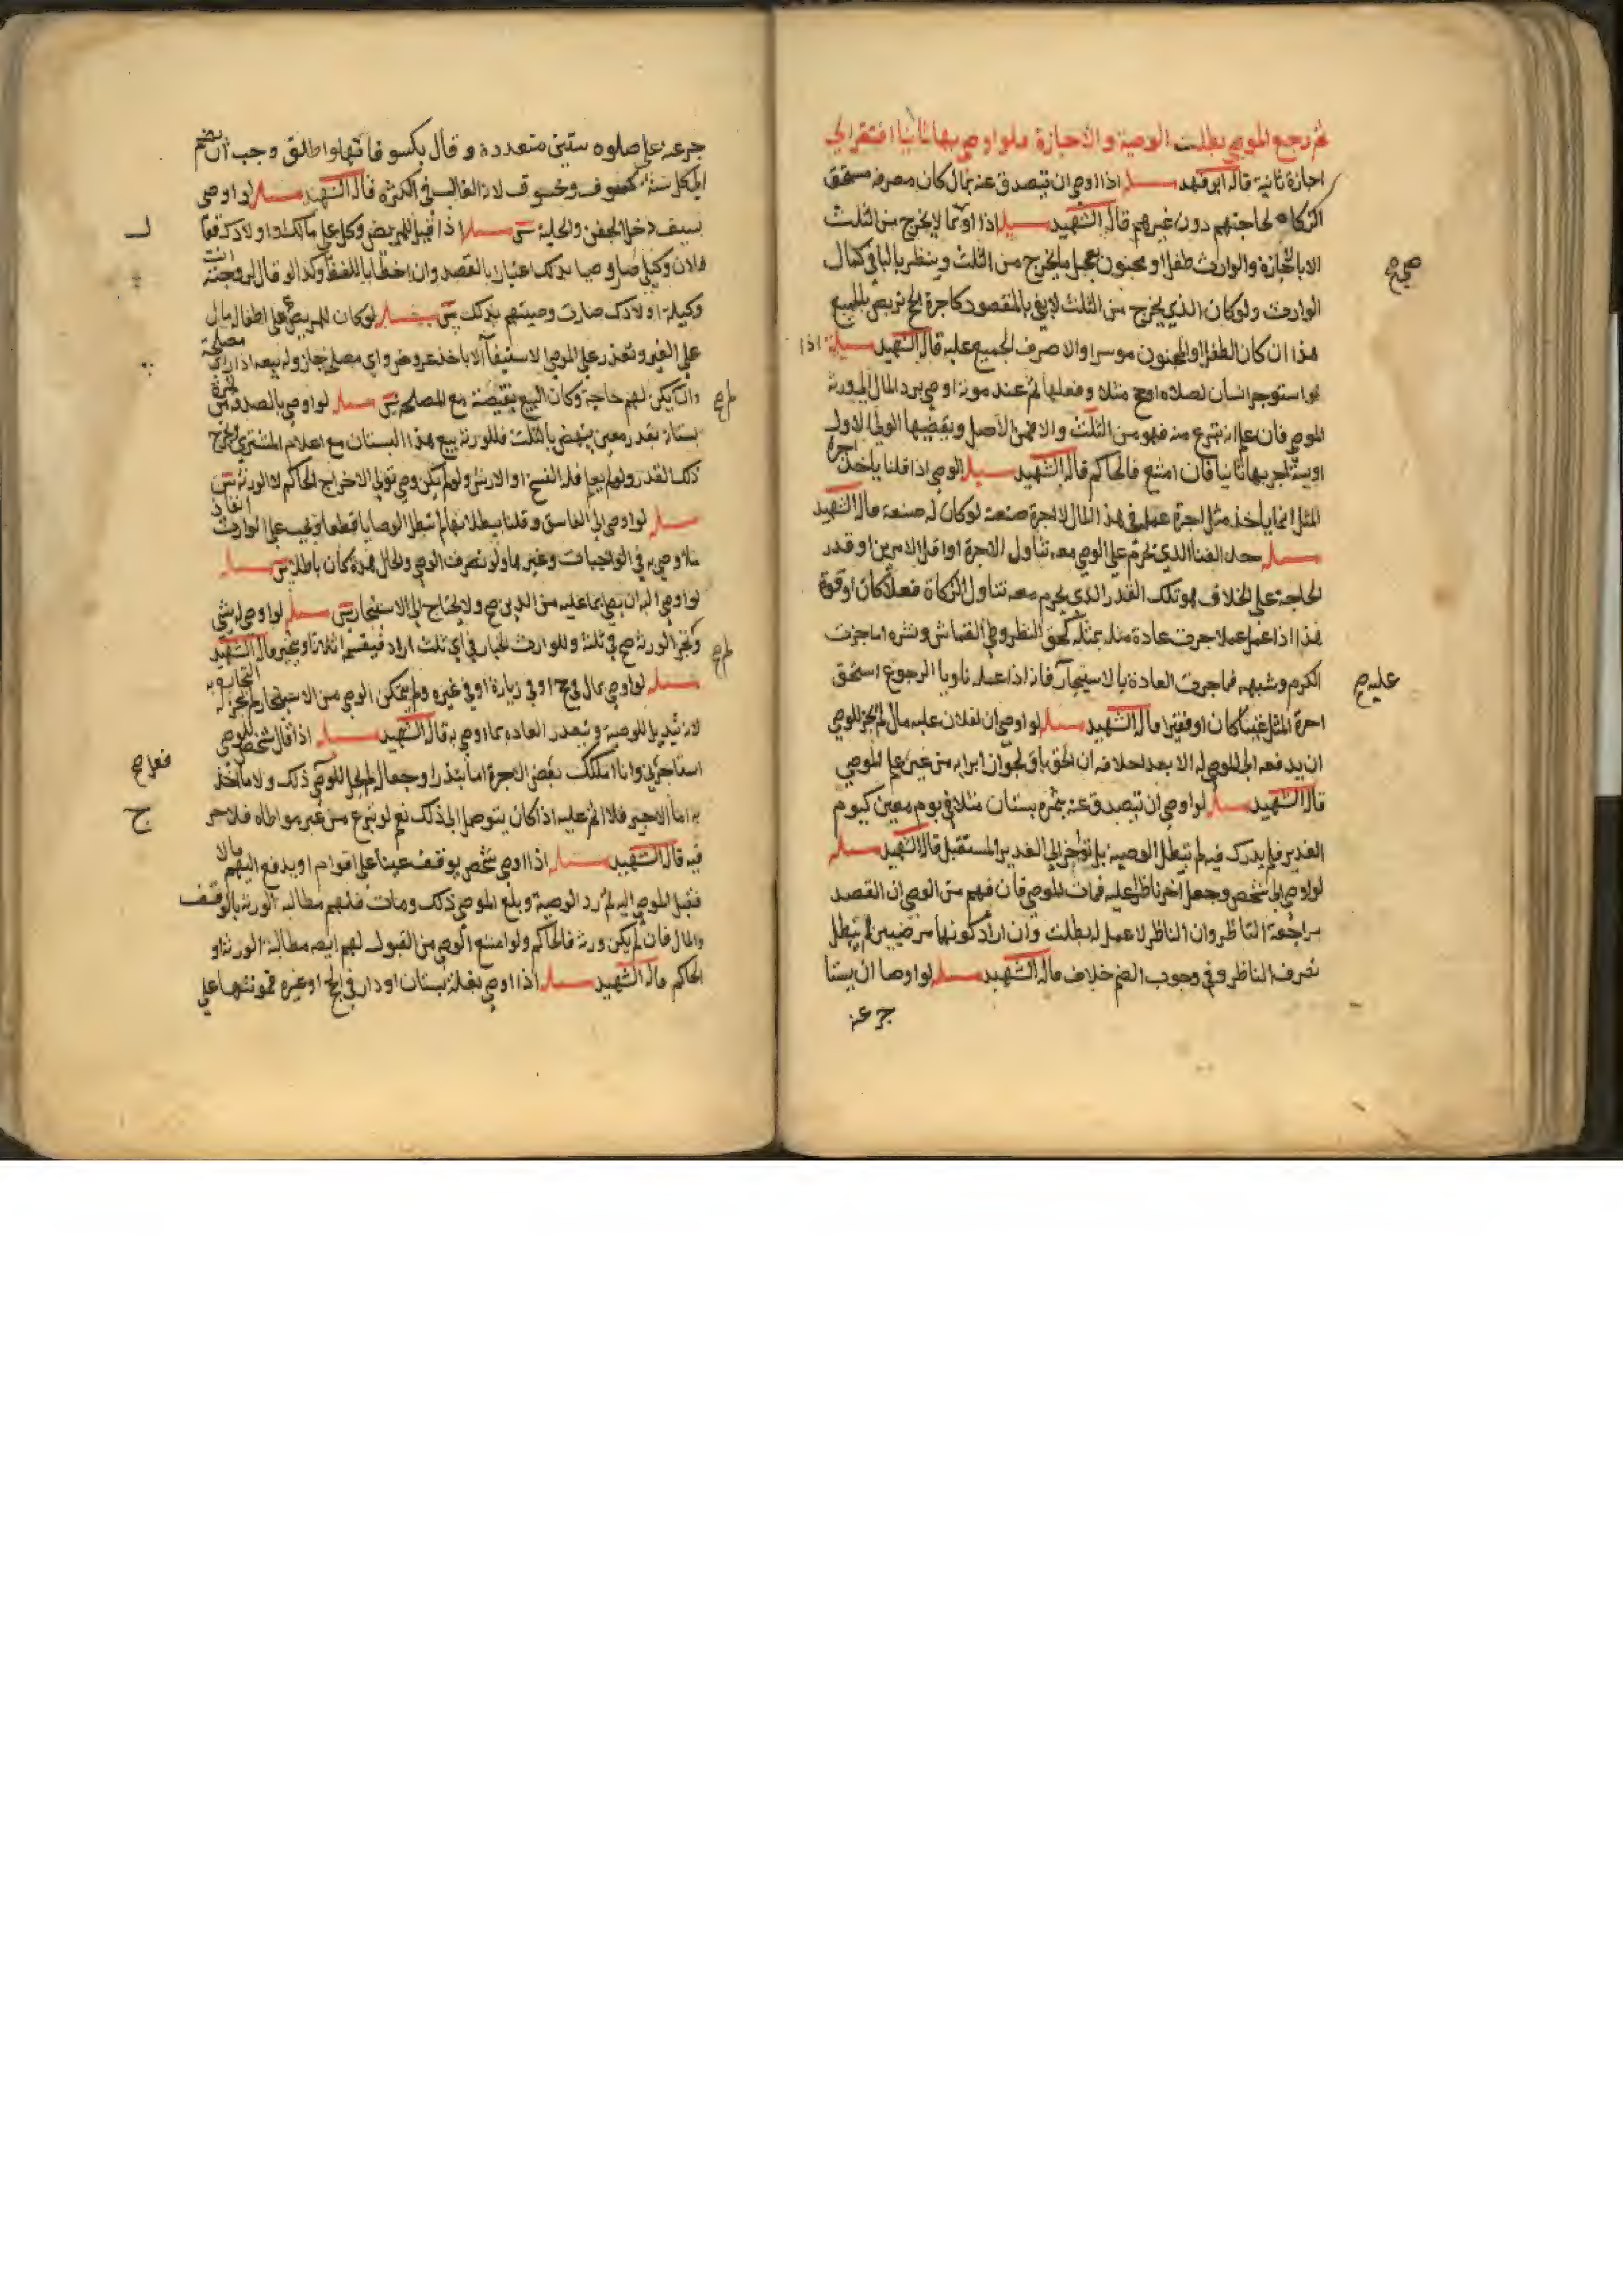 ثم رجع الموصي بطلت الوصية والاجازة فلو اوصى بها ثانيا افتقر الى
اجازة ثانية قال ابن فهد مسئلة اذا اوصى ان يتصدق عنه بمال كان مصرفه مستحق
الزكاة لحاجتهم دون غيرهم قال الشهيد مسئلة اذا اوصى بما لا يخرج من الثلث
الا بالاجازة والوارث طفل او مجنون عجل ما يخرج من الثلث وينظر بالباقي كمال
الوارث ولو كان الذي يخرج من الثلث لا يفي بالمقصود كاجرة الحج تربص بالجميع
هذا ان كان الطفل او المجنون موسرا والا صرف الجميع عليه قال الشهيد مسئلة اذا
لو استوجر انسان لصلاة او حج مثلا وفعلها ثم عند موته اوصى برد المال الى ورثة
الموصي فان علم انه تبرع منه فهو من الثلث والا فمن الاصل ويقضيها الولي الاول
او يستاجر بها ثانيا فان امتنع فالحاكم قال الشهيد مسئلة الوصي اذا قلنا ياخذ اجرة
المثل انما ياخذ مثل اجرة عمله في هذا المال لا اجرة صنعة لو كان له صنعة قال الشهيد
مسئلة حد الغنا الذي يحرم على الوصي معه تناول الاجرة او اقل الامرين او قدر
الحاجة على الخلاف هو تلك القدر الذي يحرم معه تناول الزكاة فعلا كان او قوة
هذا اذا عمل عملا جرت عادة مثله بمثله كحق النظر وطي القماش ونشره اما حرث
الكرم وشبهه فما جرت العادة بالاستيجار فانه اذا عمله ناويا الرجوع استحق
اجرة المثل غنيا كان او فقيرا قال الشهيد مسئلة لو اوصى ان لفلان عليه مال لم يجز للوصي
ان يدفعه الى الموصى له الا بعد احلافه ان الحق باق لجواز ابرايه من غير علم الموصي
قال الشهيد مسئلة لو اوصى ان يتصدق عنه بثمرة بستان مثلا في يوم معين كيوم
الغدير فلم يدرك فيه لم تبطل الوصية بل تؤخر الى الغدير المستقبل قال الشهيد مسئلة
لو اوصى الى شخص وجعل اخر ناظرا عليه فمات الموصي فان فهم من الوصي ان القصد
مراجعة الناظر وان الناظر لا عمل له بطلت وان اراد كونهما مرضيين لم يبطل
تصرف الناظر وفي وجوب الضم خلاف قال الشهيد مسئلة لو اوصا ان يستا
جر عنه
صح
عليه صح
جر عنه على صلوة سنين متعددة وقال بكسوفاتها ولو اطلق وجب ان يضم
الى كل سنة كسوف وخسوف لانه الغالب في الكثرة قال الشهيد مسئلة لو اوصى
بسيف دخل الجفن والحلية مسئلة اذا قيل للمريض وكل على مالك او اولادك فقال
فلان وكيلي صار وصيا بذلك اعتبارا بالقصد وان اخطأ باللفظ وكذا لو قال لزوجته انت
وكيلة اولادك صارت وصيتهم بذلك مسئلة لو كان للمريض على اطفال مال
على الغير وتعذر على الوصي الاستيفاء الا باخذ عروض واي مصلحة جاز وله بيعه اذا رأى مصلحة
وان لم يكن لهم حاجة وكان البيع بنقيصة مع المصلحة مسئلة لو اوصى بالصدقة من ثمرة
بستان بقدر معين ينهض بالثلث فللورثة بيع هذا البستان مع اعلام المشتري ويخرج
ذلك القدر ولو لم يعلم فله الفسخ او الارش ولو لم يكن وصي تولى الاخراج الحاكم لا الورثة
مسئلة لو اوصى الى الفاسق وقلنا ببطلانها لم تبطل الوصايا قطعا ويجب على الوارث انفاذ
ما اوصى به في الواجبات وغيرها ولو تصرف الوصي والحال هذه كان باطلا مسئلة
لو اوصى اليه ان يقضي ما عليه من الدين صح ولا يحتاج الى الاستيجار مسئلة لو اوصى له بشي
ولم يجز الورثة صح في ثلثه وللوارث الخيار في اي ثلث اراد فيقسم اثلاثا وغيره قال الشهيد
مسئلة لو اوصى بمال في حج او في زيارة او في غيره ولم يتمكن الوصي من الاستيجار لم يجز له التجارة به
لانه تبديل للوصية وتعذر العادة بما اوصى به قال الشهيد مسئلة اذا قال شخص للوصي
استاجرني وانا املكك بعض الاجرة اما بنذر او جعالة لم يحل للوصي ذلك ولا ما ياخذ
به اما الاجير فلا اثم عليه اذا كان يتوصل الى ذلك نعم لو تبرع من غير مواطاة فلا حرج
فيه قال الشهيد مسئلة اذا اوصى شخص بوقف عينا على اقوام او يدفع اليهم مالا
فقبل الموصى اليه ثم رد الوصية وبلغ الموصي ذلك ومات فلهم مطالبة الورثة بالوقف
والمال فان لم يكن ورثة فالحاكم ولو امتنع الوصي من القبول لهم ايضا مطالبة الورثة او
الحاكم قال الشهيد مسئلة اذا اوصى بغلة بستان او دار في الحج او غيره فمؤنتها على